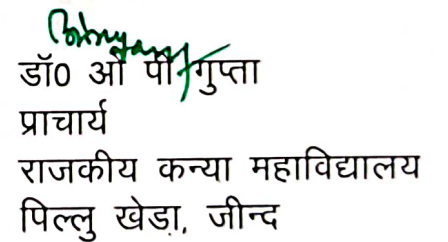 डॉ0 ओ पी गुप्ता
प्राचार्य
राजकीय कन्या महाविद्यालय
पिल्लु खेड़ा, जीन्द